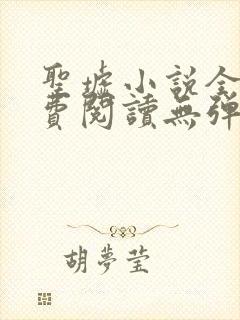 聖墟小說全
費閱讀無彈
胡夢莹